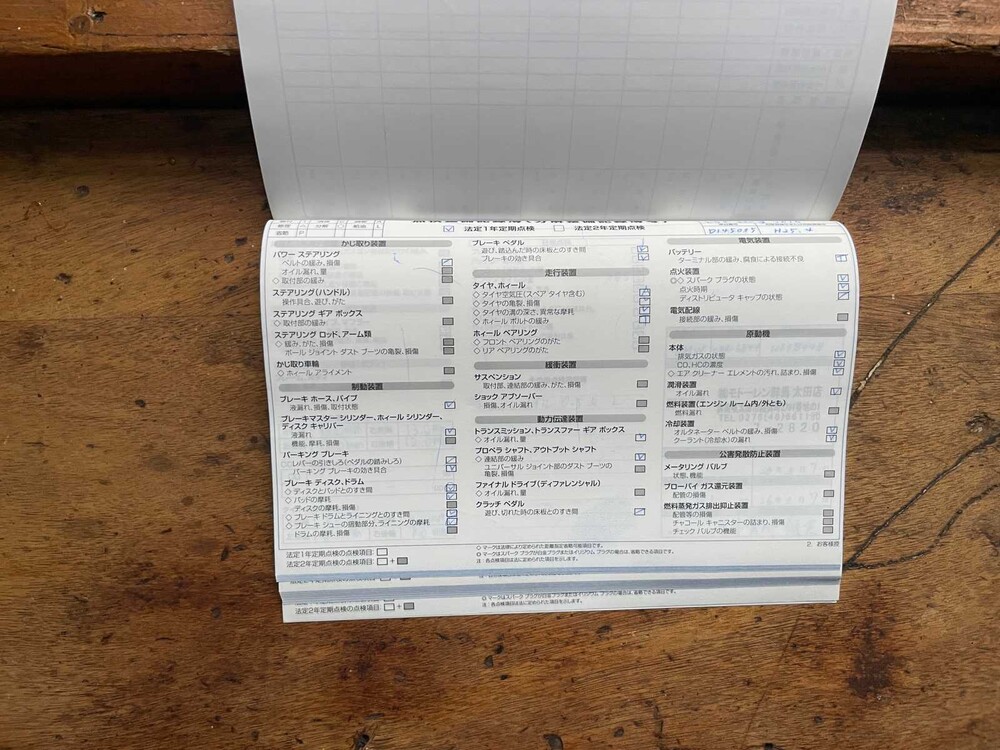 法定1年定期点検 法定2年定期点検
かじ取り装置
パワー ステアリング
ベルトの緩み、損傷
オイル漏れ、量
◇ 取付部の緩み
ステアリング(ハンドル)
操作具合、遊び、がた
ステアリング ギア ボックス
◇ 取付部の緩み
ステアリング ロッド、アーム類
◇ 緩み、がた、損傷
ボール ジョイント ダスト ブーツの亀裂、損傷
かじ取り車輪
◇ ホィール アライメント
制動装置
ブレーキ ホース、パイプ
液漏れ、損傷、取付状態
ブレーキマスター シリンダー、ホィール シリンダー、
ディスク キャリパー
液漏れ
機能、摩耗、損傷
パーキング ブレーキ
レバーの引きしろ(ペダルの踏みしろ)
パーキング ブレーキの効き具合
ブレーキ ディスク、ドラム
◇ ディスクとパッドとのすき間
◇ パッドの摩耗
ディスクの摩耗、損傷
◇ ブレーキ ドラムとライニングとのすき間
◇ ブレーキ シューの摺動部分、ライニングの摩耗
ドラムの摩耗、損傷
ブレーキ ペダル
遊び、踏込んだ時の床板とのすき間
ブレーキの効き具合
走行装置
タイヤ、ホィール
◇ タイヤ空気圧(スペア タイヤ含む)
◇ タイヤの亀裂、損傷
◇ タイヤの溝の深さ、異常な摩耗
◇ ホィール ボルトの緩み
ホィール ベアリング
◇ フロント ベアリングのがた
◇ リア ベアリングのがた
緩衝装置
サスペンション
取付部、連結部の緩み、がた、損傷
ショック アブソーバー
損傷、オイル漏れ
動力伝達装置
トランスミッション、トランスファー ギア ボックス
◇ オイル漏れ、量
プロペラ シャフト、アウトプット シャフト
◇ 連結部の緩み
ユニバーサル ジョイント部のダスト ブーツの
亀裂、損傷
ファイナル ドライブ(ディファレンシャル)
◇ オイル漏れ、量
クラッチ ペダル
遊び、切れた時の床板とのすき間
電気装置
バッテリー
ターミナル部の緩み、腐食による接続不良
点火装置
◎◇ スパーク プラグの状態
点火時期
ディストリビュータ キャップの状態
電気配線
接続部の緩み、損傷
原動機
本体
排気ガスの状態
CO、HCの濃度
◇ エア クリーナー エレメントの汚れ、詰まり、損傷
潤滑装置
オイル漏れ
燃料装置(エンジン ルーム内/外とも)
燃料漏れ
冷却装置
オルタネーター ベルトの緩み、損傷
クーラント(冷却水)の漏れ
公害発散防止装置
メータリング バルブ
状態、機能
ブローバイ ガス還元装置
配管の損傷
燃料蒸発ガス排出抑止装置
配管等の損傷
チャコール キャニスターの詰まり、損傷
チェック バルブの機能
法定1年定期点検の点検項目:
法定2年定期点検の点検項目: +
注:各点検項目は法に定められた項目を示します。
2. お客様控
法定2年定期点検の点検項目: +
注:各点検項目は法に定められた項目を示します。